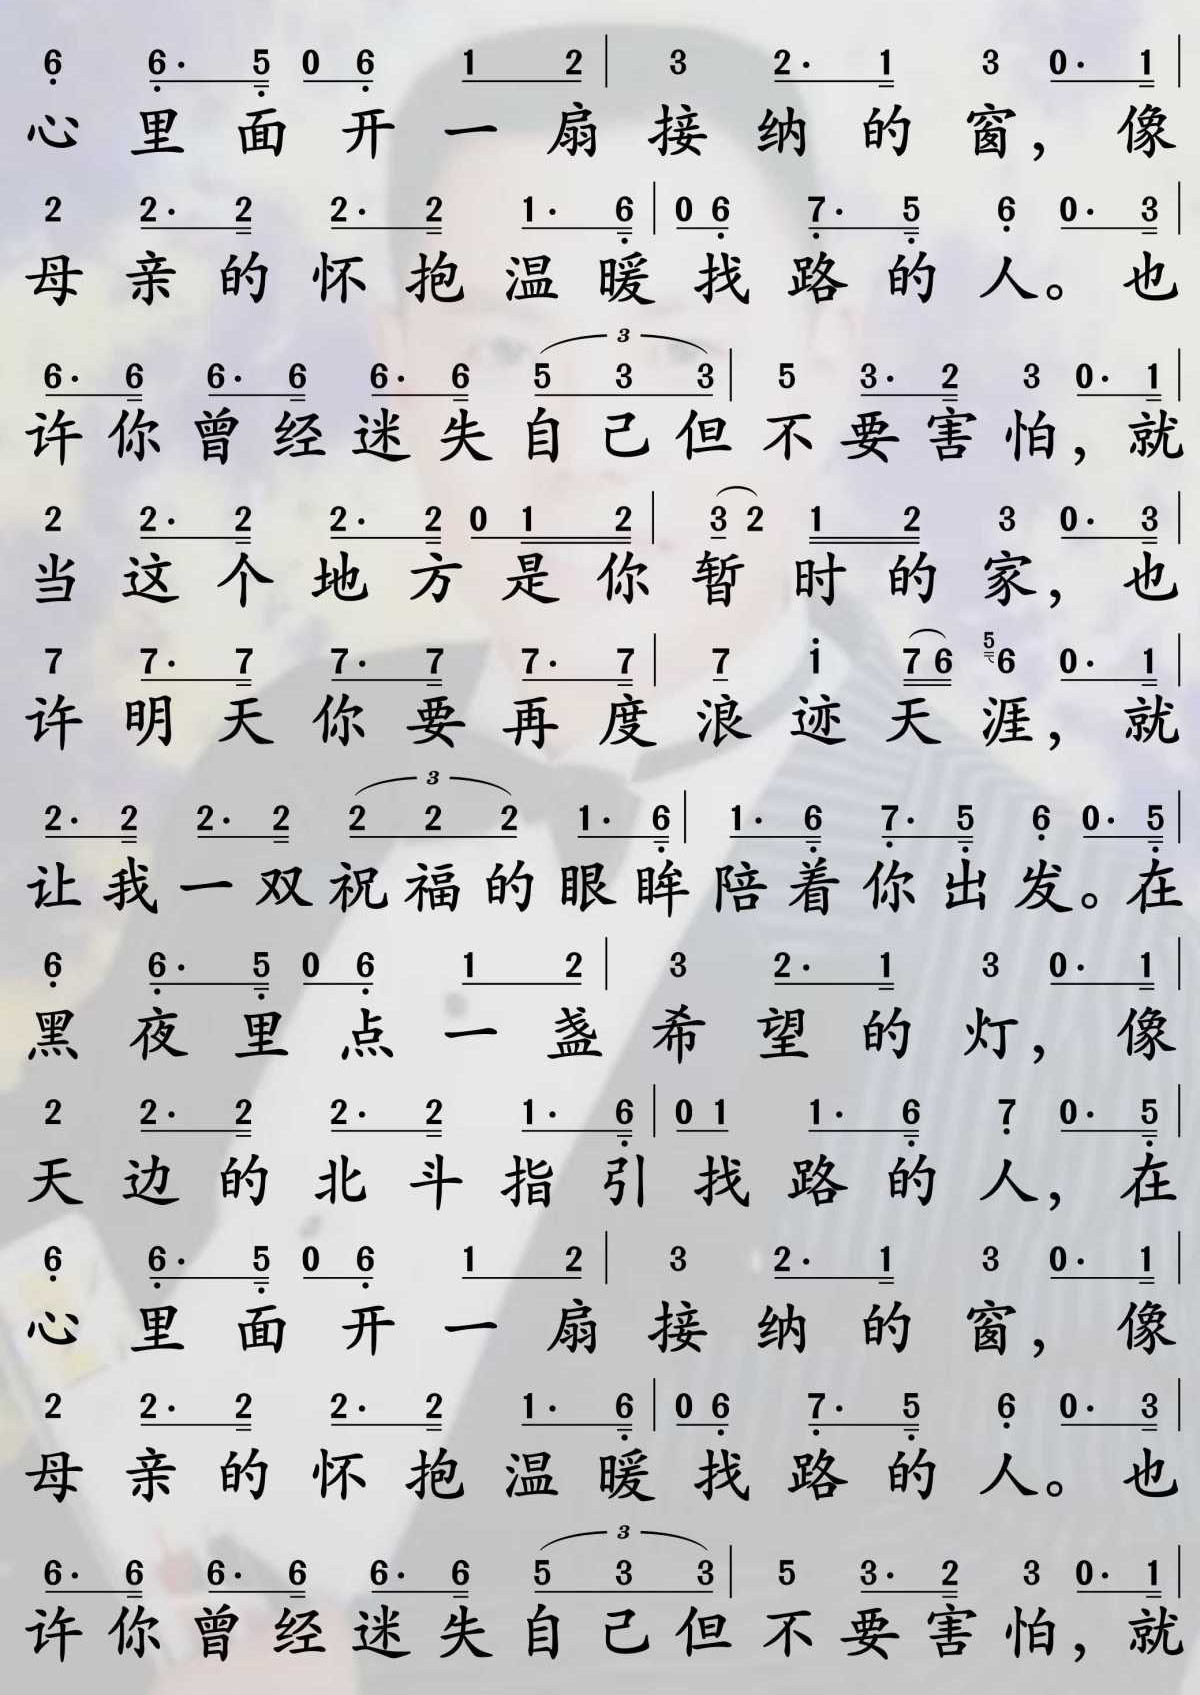 6 6· 5 0 6 1 2 | 3 2· 1 3 0· 1 |
心里面开一扇接纳的窗，像
2 2· 2 2· 2 1· 6 | 0 6 7· 5 6 0· 3 |
母亲的怀抱温暖找路的人。也
3
6· 6 6· 6 6· 6 5 3 3 | 5 3· 2 3 0· 1 |
许你曾经迷失自己但不要害怕，就
2 2· 2 2· 2 0 1 2 | 3 2 1 2 3 0· 3 |
当这个地方是你暂时的家，也
7 7· 7 7· 7 7· 7 | 7 i 7 6 5 6 0· 1 |
许明天你要再度浪迹天涯，就
3
2· 2 2· 2 2 2 2 1· 6 | 1· 6 7· 5 6 0· 5 |
让我一双祝福的眼眸陪着你出发。在
6 6· 5 0 6 1 2 | 3 2· 1 3 0· 1 |
黑夜里点一盏希望的灯，像
2 2· 2 2· 2 1· 6 | 0 1 1· 6 7 0· 5 |
天边的北斗指引找路的人，在
6 6· 5 0 6 1 2 | 3 2· 1 3 0· 1 |
心里面开一扇接纳的窗，像
2 2· 2 2· 2 1· 6 | 0 6 7· 5 6 0· 3 |
母亲的怀抱温暖找路的人。也
3
6· 6 6· 6 6· 6 5 3 3 | 5 3· 2 3 0· 1 |
许你曾经迷失自己但不要害怕，就